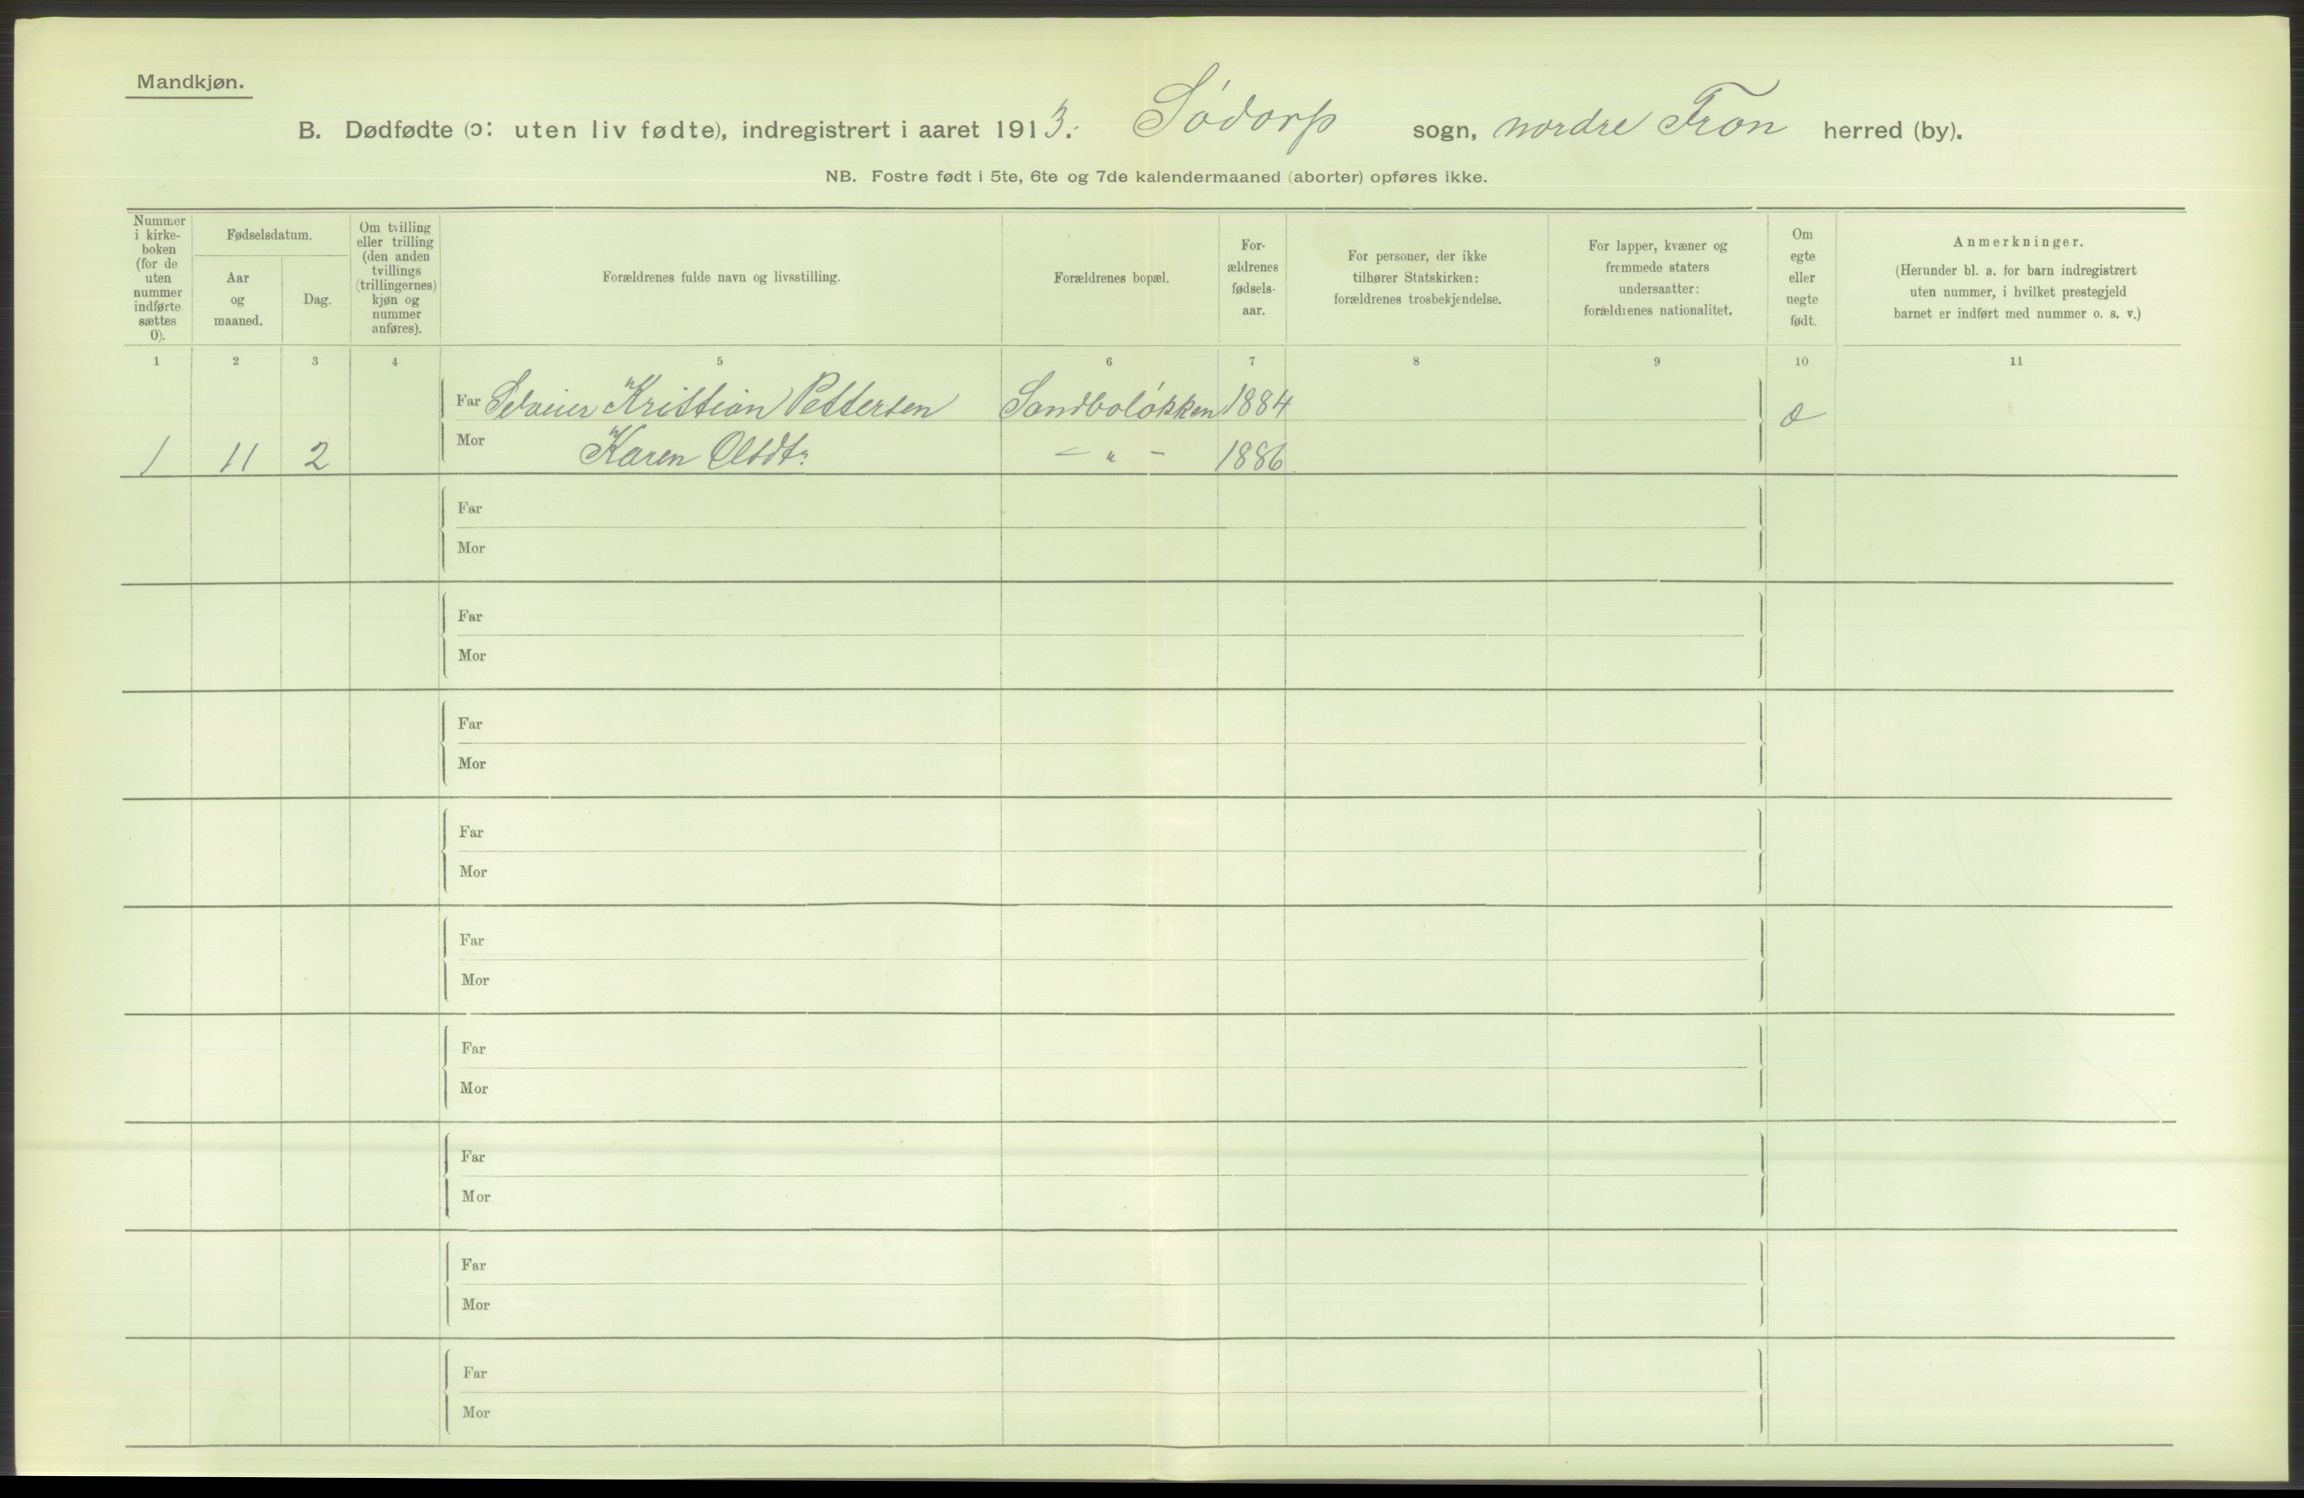 Mandkjøn.
B. Dødfødte (ɔ: uten liv fødte), indregistrert i aaret 1913. Sødorp sogn, nordre Fron herred (by).
NB. Fostre født i 5te, 6te og 7de kalendermaaned (aborter) opføres ikke.
Nummer
i kirke-
boken
(for de
uten
nummer
indførte
sættes
0).
Fødselsdatum.
Aar
og
maaned.
Dag.
Om tvilling
eller trilling
(den anden
tvillings
(trillingernes)
kjøn og
nummer
anføres).
Forældrenes fulde navn og livsstilling.
Forældrenes bopæl.
For-
ældrenes
fødsels-
aar.
For personer, der ikke
tilhører Statskirken:
forældrenes trosbekjendelse.
For lapper, kvæner og
fremmede staters
undersaatter:
forældrenes nationalitet.
Om
egte
eller
uegte
født.
Anmerkninger.
(Herunder bl. a. for barn indregistrert
uten nummer, i hvilket prestegjeld
barnet er indført med nummer o. s. v.)
1 2 3 4 5 6 7 8 9 10 11
Far Selveier Kristian Pettersen Sandboløkken 1884
1 11 2 Mor Karen Olsdtr. - " - 1886
Far
Mor
Far
Mor
Far
Mor
Far
Mor
Far
Mor
Far
Mor
Far
Mor
Far
Mor
Far
Mor